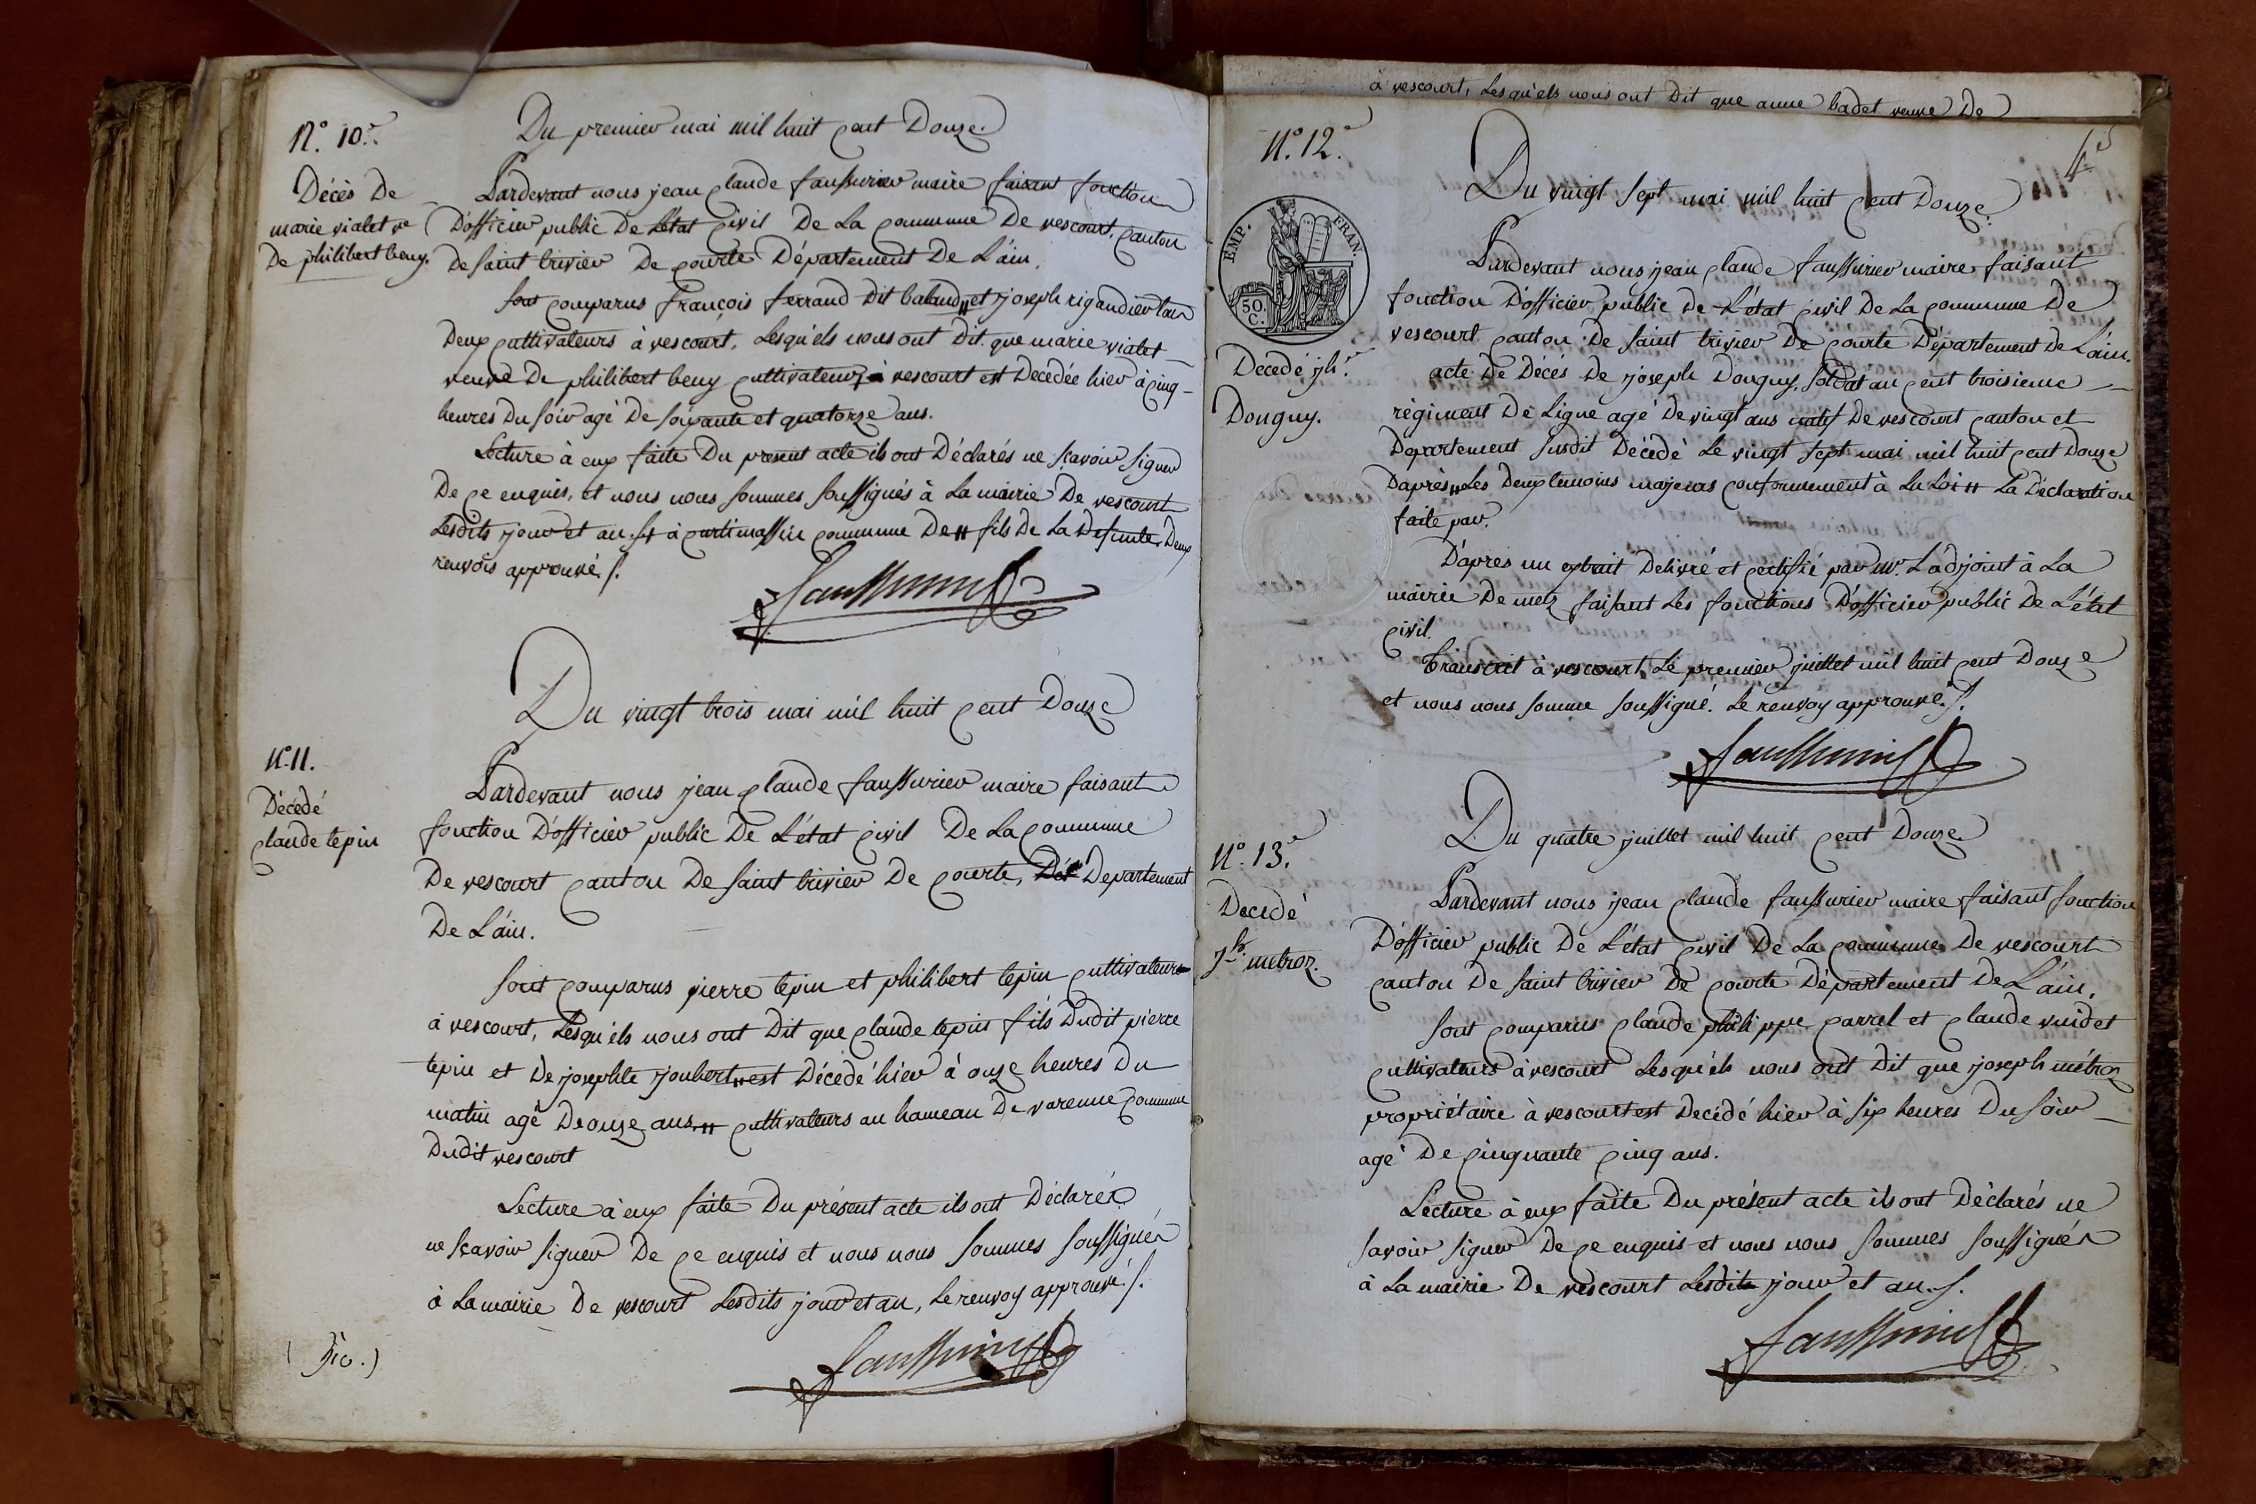 N.° 10.e
Du premier mai mil huit cent Douze.
Décés De
marie vialet ve
De philibert beny.
Pardevant nous jean claude faussurier maire faisant fonction
D'officier public De L'état civil De La commune De vescourt, canton
De saint trivier De courte Département De L'ain.
sont comparus françois ferrand dit baland # et joseph rigaudier tous
Deux cultivateurs à vescourt, Lesqu'els nous ont Dit que marie vialet
veuve De philibert beny cultivateur, à vescourt est Décédée hier à cinq
heures Du soir agé De soixante et quatorze ans.
Lecture à eux faite Du present acte ils ont Déclarés ne sçavoir signer
De ce enquis, et nous nous sommes soussignés à La mairie De vescourt
Lesdits jour et an. # à curtimassin commune De # fils De La Defunte. Deux
renvois approuvé ./.
faussurier
Du vingt trois mai mil huit cent Douze
N.11.
Décédé
claude tepin
Pardevant nous jean claude faussurier maire faisant
fonction D'officier public De L'état civil De La commune
De vescourt canton De saint trivier De courte, Departement
De L'ain.
sont comparus pierre tepin et philibert tepin cultivateurs
à vescourt, Lesqu'els nous ont Dit que claude tepin fils Dudit pierre
tepin et De josephte joubert # est Décédé hier à onze heures Du
matin agé De onze ans. # cultivateurs au hameau De varenne commune
Dudit vescourt
Lecture à eux faite Du présent acte ils ont Déclarés
ne sçavoir signer De ce enquis et nous nous sommes soussignés
à La mairie De vescourt Lesdits jour et an, Le renvoy approuvé ./.
faussurier
à vescourt, Lesqu'els nous ont Dit que anne badet veuve De
N.° 12.e
Du vingt sept mai mil huit cent Douze.
EMP. FRAN.
50 C.
Decedé jh.
Douguy.
Pardevant nous jean claude faussurier maire faisant
fonction D'officier public De L'état civil De La commune De
vescourt canton De saint trivier De courte Département De L'ain.
acte De Décés De joseph Douguy, soldat au cent troisieme
régiment De Ligne agé De vingt ans natif De vescourt canton et
Departement susdit Décédé Le vingt sept mai mil huit cent Douze
Daprès # Les Deux temoins majeurs conformement à La Loi # La Déclaration
faite par.
D'après un extrait Delivré et certifié par mr. L'adjoint à La
mairie De metz faisant Les fonctions D'officier public De L'état
civil.
Transcrit à vescourt Le premier juillet mil huit cent Douze
et nous nous somme soussigné. Le renvoy approuvé ./.
faussurier
Du quatre juillet mil huit cent Douze
N.° 13.e
Decedé
jh. metroz.
Pardevant nous jean claude faussurier maire faisant fonction
D'officier public De L'état civil De La commune De vescourt
canton De saint trivier De courte Département De L'ain.
sont comparus claude philippe carrel et claude vuidet
cultivateurs à vescourt Lesqu'els nous ont Dit que joseph métroz
propriétaire à vescourt est Decédé hier à six heures Du soir
agé De cinquante cinq ans.
Lecture à eux faite Du présent acte ils ont Déclarés ne
savoir signer De ce enquis et nous nous sommes soussignés
à La mairie De vescourt Lesdits jour et an ./.
faussurier